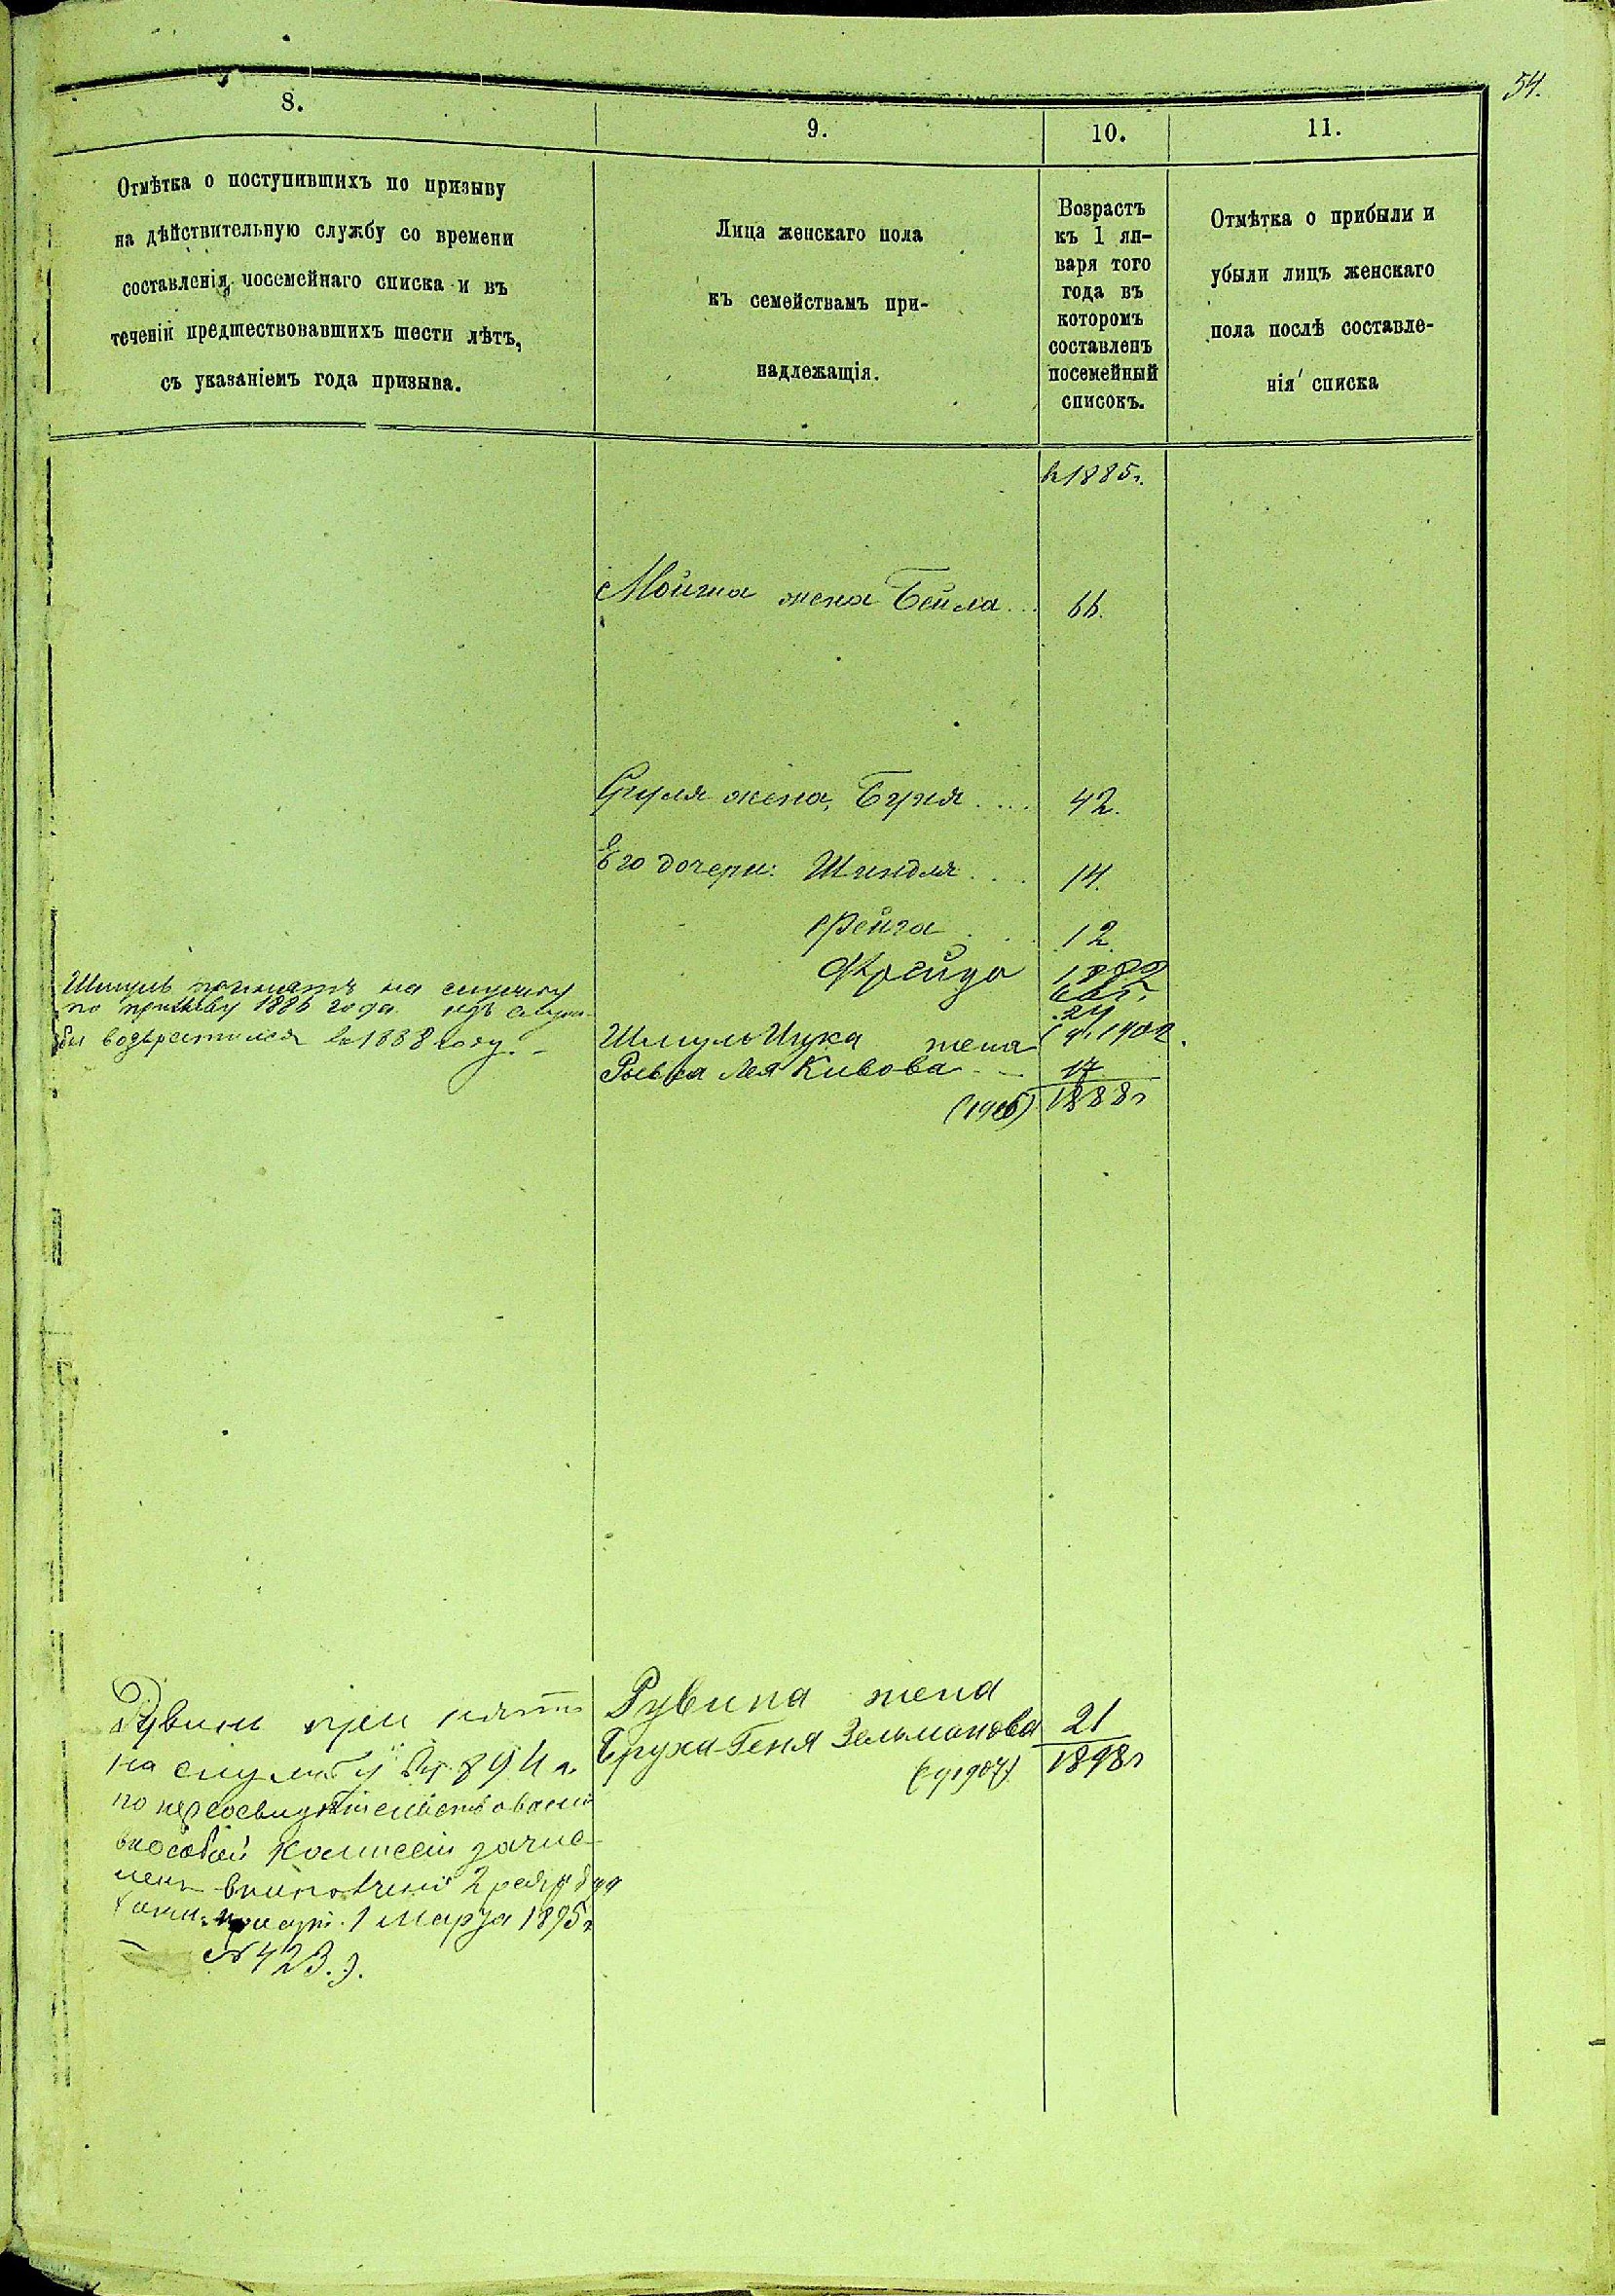 54.
8.
9.
10.
11.
Отмѣтка о поступившихъ по призыву
на дѣйствительную службу со времени
составленія посемейнаго списка и въ
теченіи предшествовавшихъ шести лѣтъ,
съ указаніемъ года призыва.
Лица женскаго пола
къ семействамъ при-
надлежащія.
Возрастъ
къ 1 ян-
варя того
года въ
которомъ
составленъ
посемейный
списокъ.
Отмѣтка о прибыли и
убыли лицъ женскаго
пола послѣ составле-
нія списка
въ 1885г.
жена Бейла... 66.
Сруля жена, Буня.... 42.
Его дочери: Шиндля.... 14.
Фейга 12.
Фрейда
Шмуль принятъ на службу
по призыву 1886 года. изъ служ-
бы возвратился въ 1888 году. -
Шмуль Ицка жена
Лея Кивова - 17
1888г
Рувинъ принятъ
на службу 1894 г.
по переосвидѣтельствованіи
комиссіи зачис-
ленъ 2 разряда
1 Марта 1895г
№ 423.).
Рувина жена
Бруха-Геня Зельманова 21
1898г